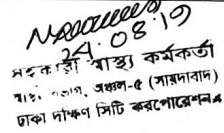 24.08.19
সহকারী স্বাস্থ্য কর্মকর্তা
স্বাস্থ্য বিভাগ, অঞ্চল-৫ (সায়দাবাদ)
ঢাকা দক্ষিণ সিটি করপোরেশন